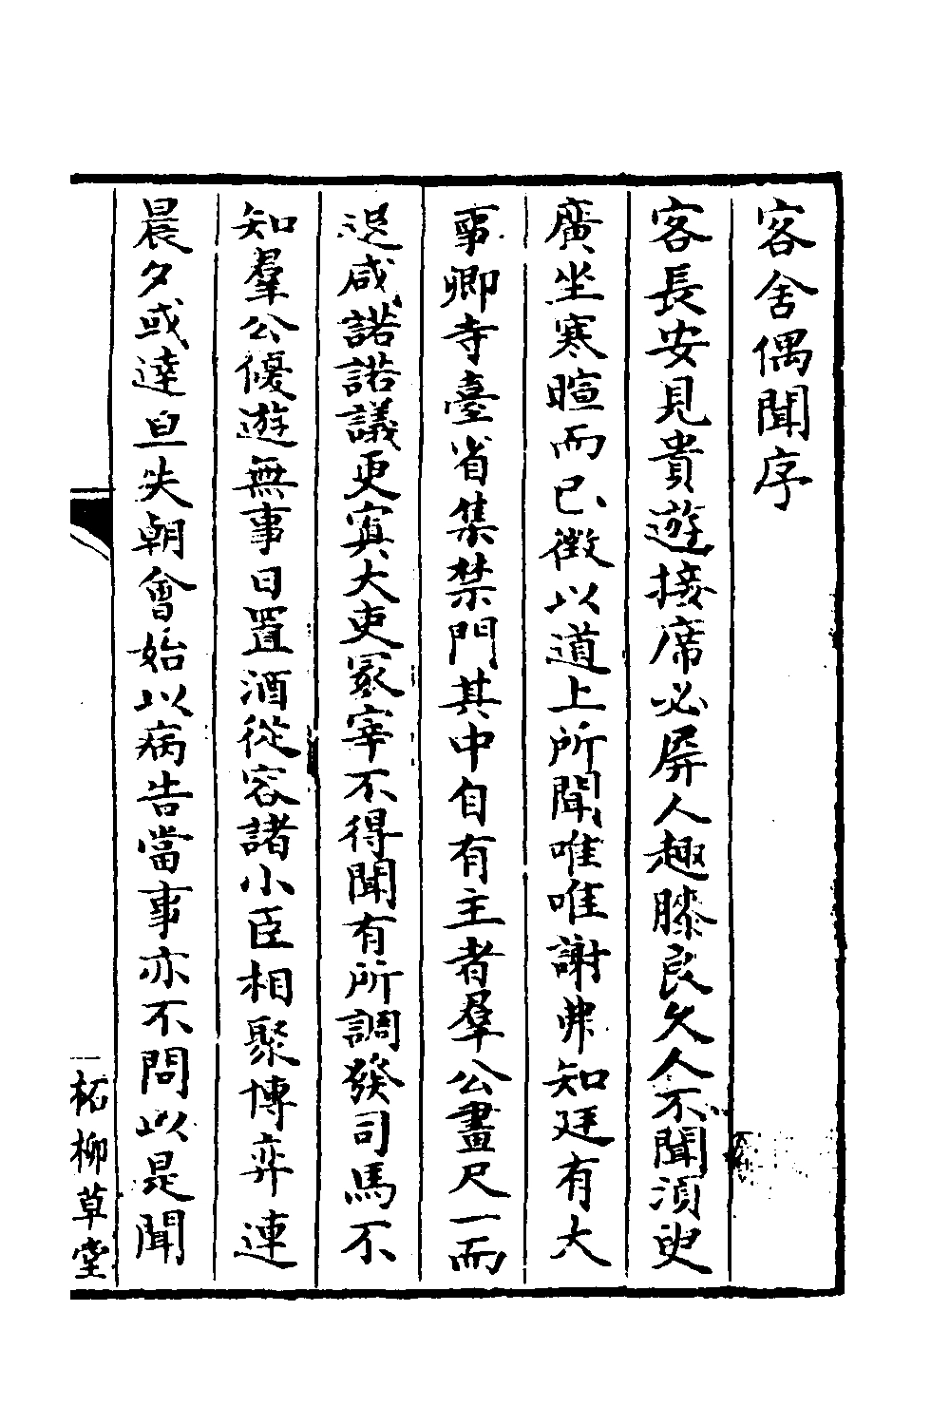 客舍偶聞序
客長安見貴遊接席必屏人趣膝良久人不聞湏臾
廣坐寒暄而已徴以道上所聞唯唯謝弗知廷有大
事卿寺臺省集禁門其中自有主者羣公畫尺一而
退咸諾諾議更寘大吏冢宰不得聞有所調發司馬不
知羣公優遊無事日置酒從容諸小臣相聚博弈連
晨夕或達旦失朝會始以病告當事亦不問以是聞
柘柳草堂